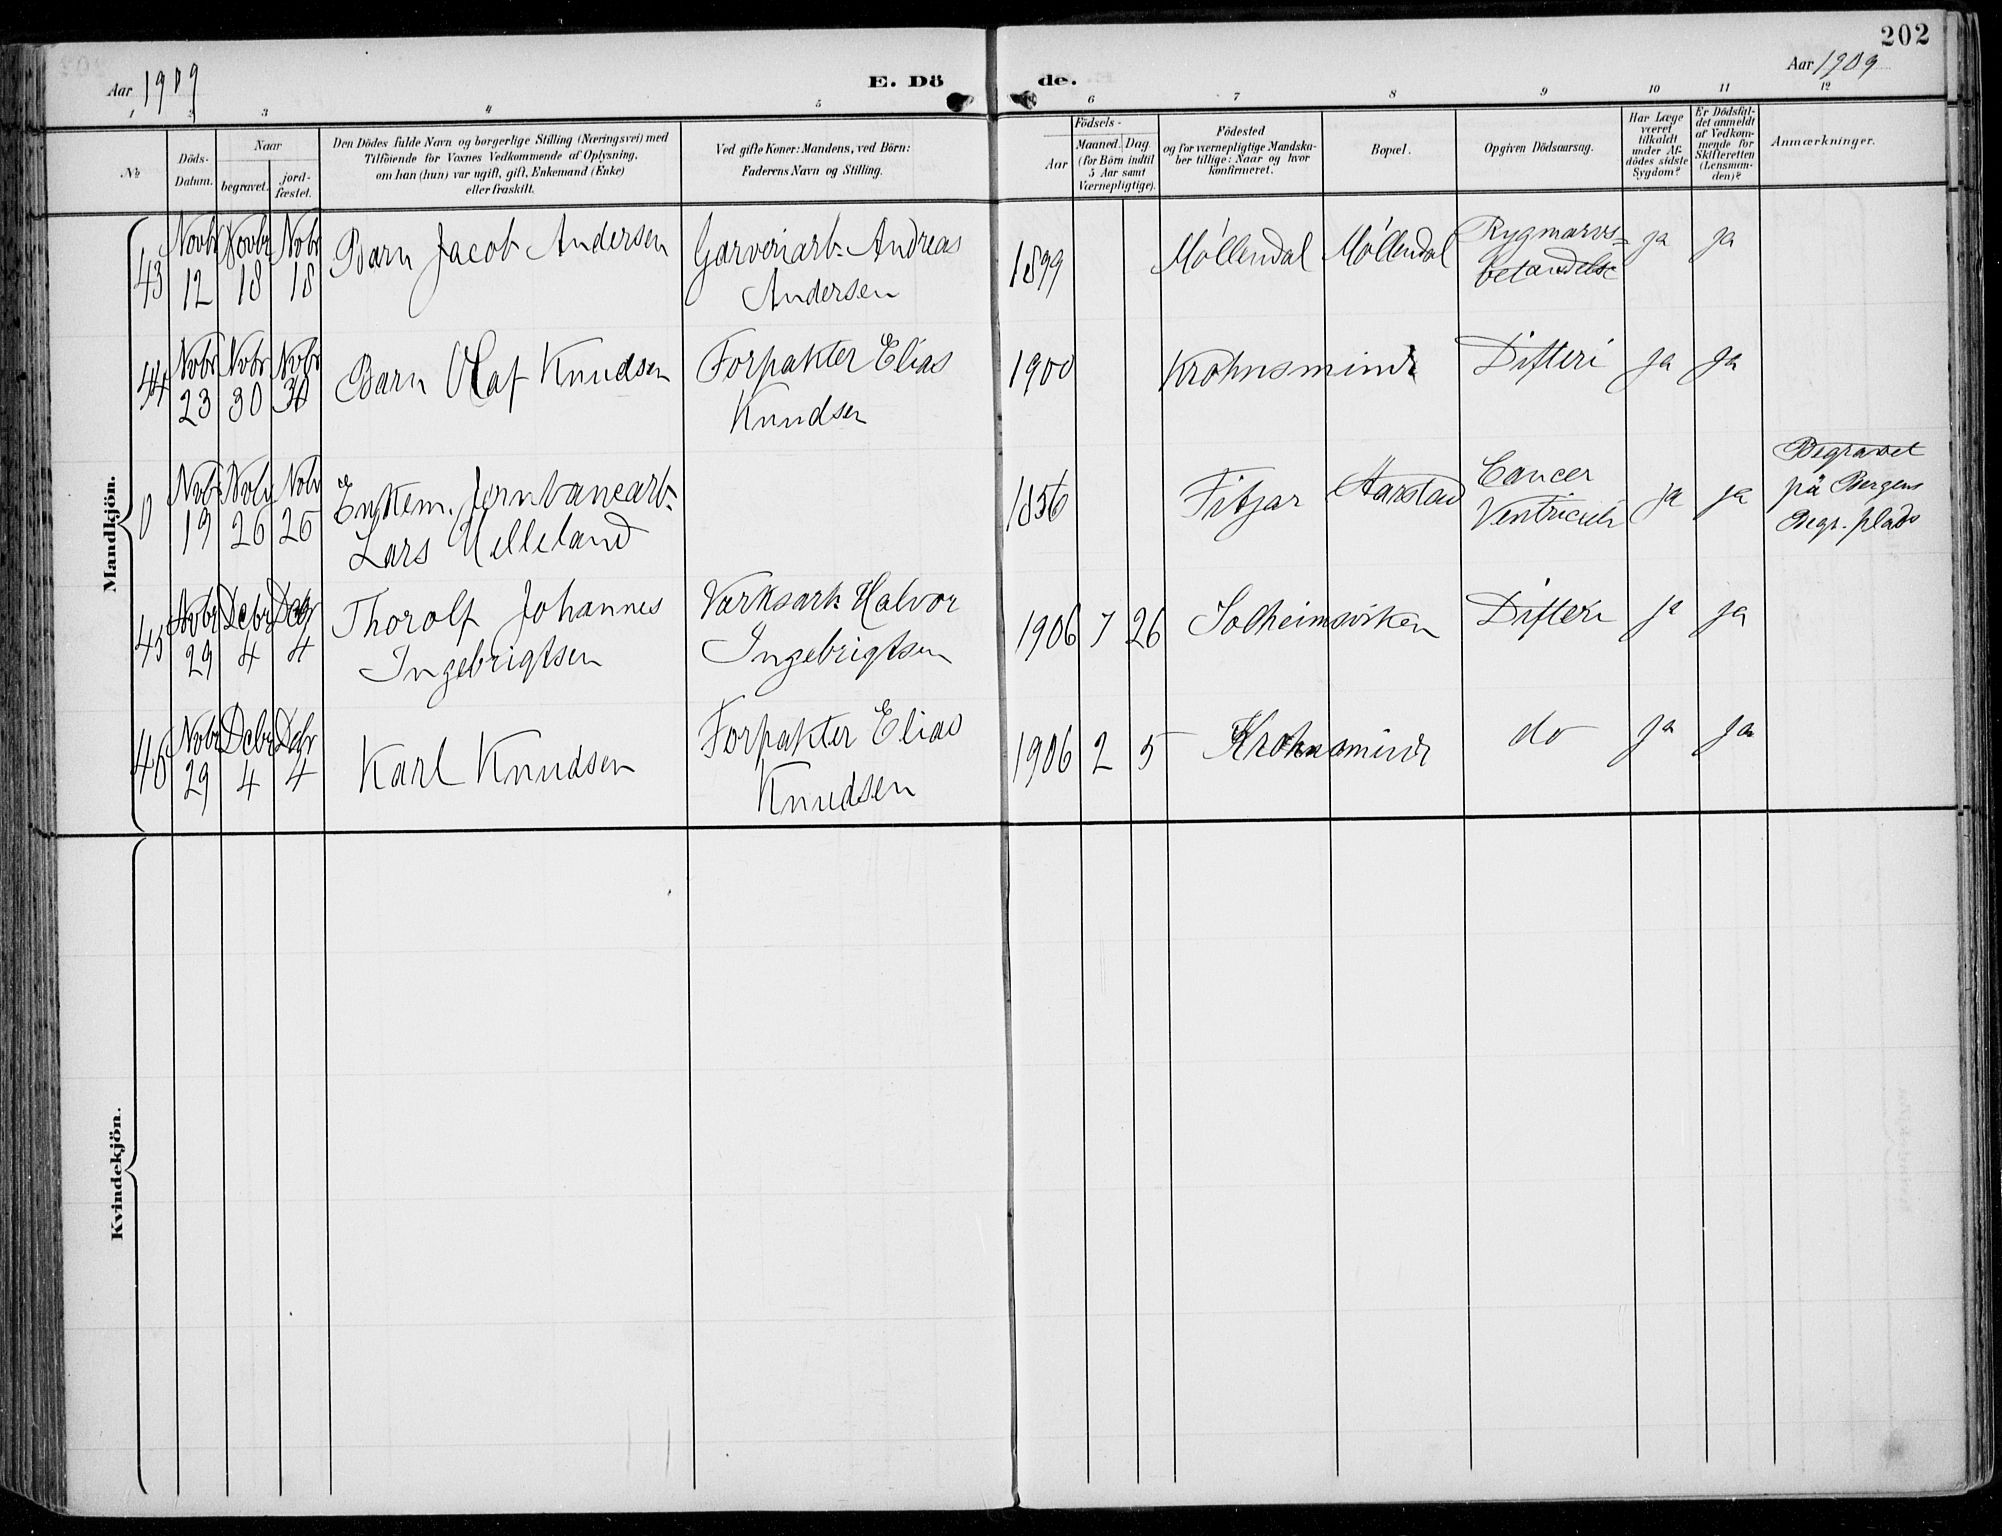 202
Aar 1909
E. Dö
de.
Aar 1909
1 2 3 4 5 6 7 8 9 10 11 12
No
Döds-
Datum.
Naar
begravet.
jord-
fæstet.
Den Dödes fulde Navn og borgerlige Stilling (Næringsvei) med
Tilföiende for Voxnes Vedkommende af Oplysning,
om han (hun) var ugift, gift, Enkemand (Enke)
eller fraskilt.
Ved gifte Koner: Mandens, ved Börn:
Faderens Navn og Stilling.
Födsels-
Aar
Maaned. Dag.
(for Börn indtil
5 Aar samt
Værnepligtige).
Födested
og for værnepligtige Mandska-
ber tillige: Naar og hvor
konfirmeret.
Bopæl.
Opgiven Dödsaarsag.
Har Læge
været
tilkaldt
under Af-
dödes sidste
Sygdom?
Er Dödsfal-
det anmeldt
af Vedkom-
mende for
Skifteretten
(Lensman-
den)?
Anmærkninger.
Mandkjön.
43 Novbr 12 Novbr 18 Nobr 18 Barn Jacob Andersen Garveriarb. Andreas Andersen 1899 Møllendal Møllendal Rygmarvs-
betændelse ja ja
44 Novbr 23 Novbr 30 Novbr 30 Barn Olaf Knudsen Forpakter Elias Knudsen 1900 Krohnsminde Difteri ja ja
0 Novb 19 Novb 26 Novb 26 Enkem. Jernbanearb.
Lars Helleland 1856 Fitjar Aarstad Cancer
Ventriculi ja ja Begravet
på Bergens
Begr. plads
45 Novbr 29 Debr 4 Debr 4 Thorolf Johannes
Ingebrigtsen Værksarb. Halvor
Ingebrigtsen 1906 7 26 Solheimsviken Difteri ja ja
46 Nobr 29 Debr 4 Debr 4 Karl Knudsen Forpakter Elias
Knudsen 1906 2 5 Krohnsminde do ja ja
Kvindekjön.